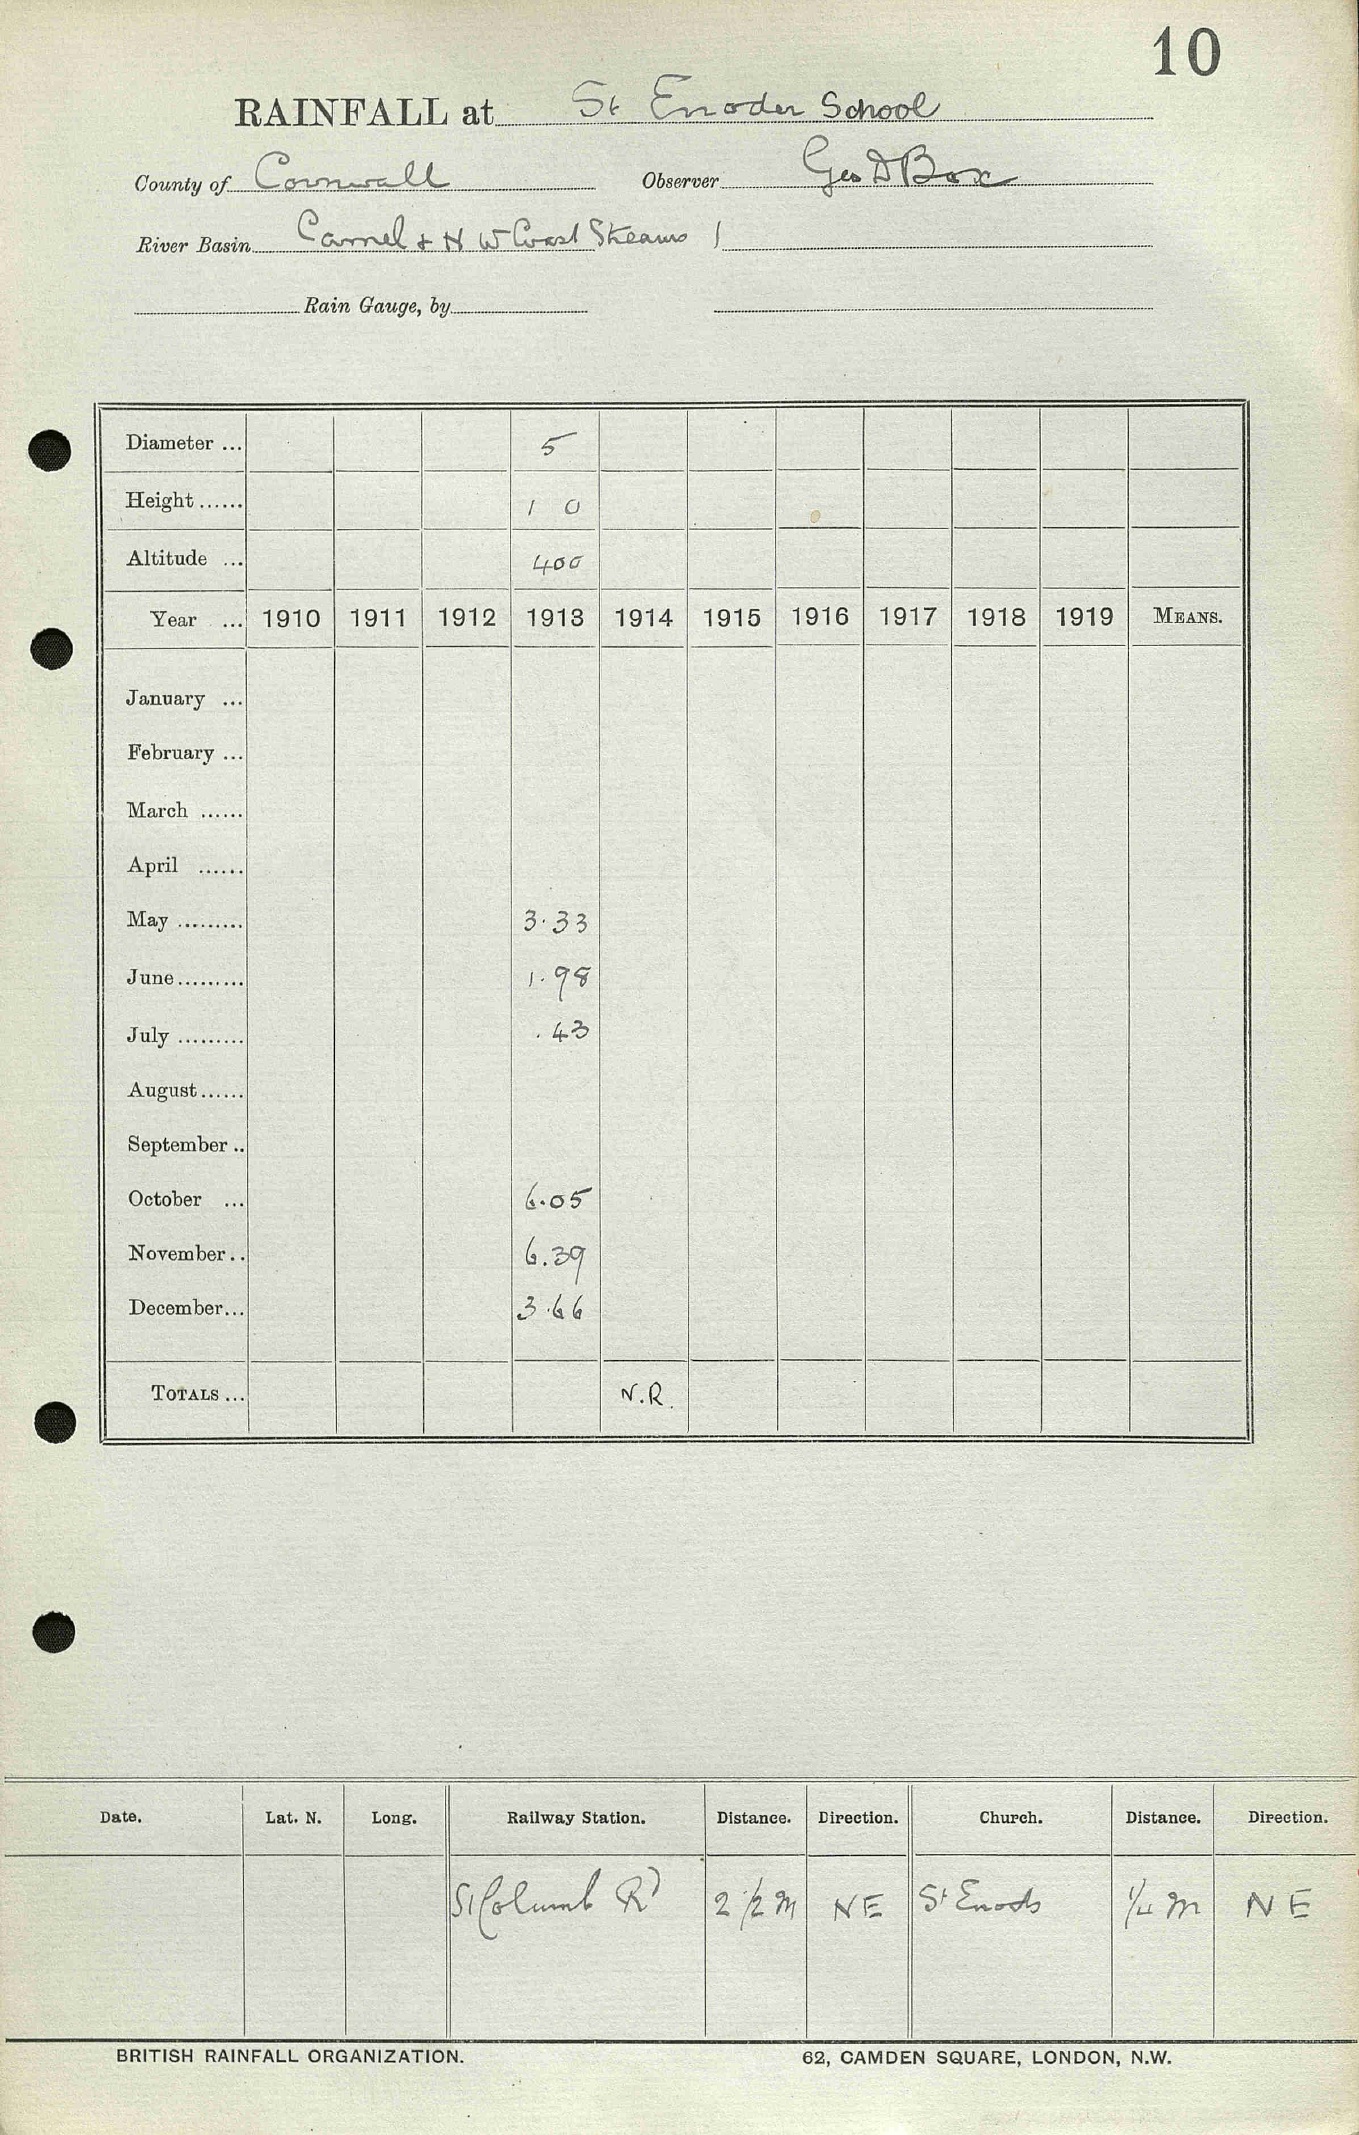 10
RAINFALL at St Enoder School
County of Cornwall Observer Geo D Box
River Basin Camel & N W Coast Streams 1
Rain Gauge, by
Diameter ... 5
Height ...... 1 0
Altitude ... 400
Year ... 1910 1911 1912 1913 1914 1915 1916 1917 1918 1919 MEANS.
January ...
February ...
March ......
April ......
May ......... 3.33
June ......... 1.98
July ......... .43
August ......
September ..
October ... 6.05
November .. 6.39
December ... 3.66
TOTALS ... N.R.
Date. Lat. N. Long. Railway Station. Distance. Direction. Church. Distance. Direction.
St Columb Rd 2 1/2 m NE St Enods 1/4 m NE
BRITISH RAINFALL ORGANIZATION. 62, CAMDEN SQUARE, LONDON, N.W.